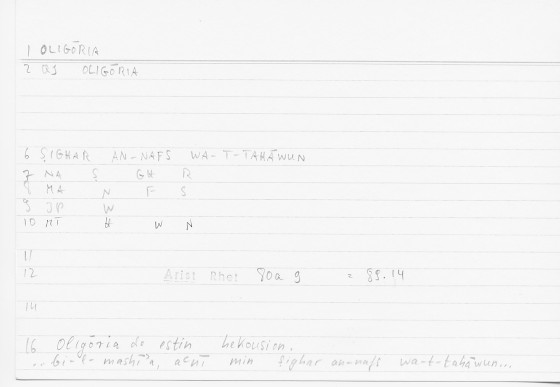 1 OLIGŌRIA
2 QS OLIGŌRIA
6 ṢIGHAR AN-NAFS WA-T-TAHĀWUN
7 NA Ṣ GH R
8 MA N F S
9 JP W
10 MT H W N
11
12 Arist Rhet 80a 9 = 89.14
14
16 Oligōria de estin hekousion.
... bi-l-mashī'a, aʿnī min ṣighar an-nafs wa-t-tahāwun...